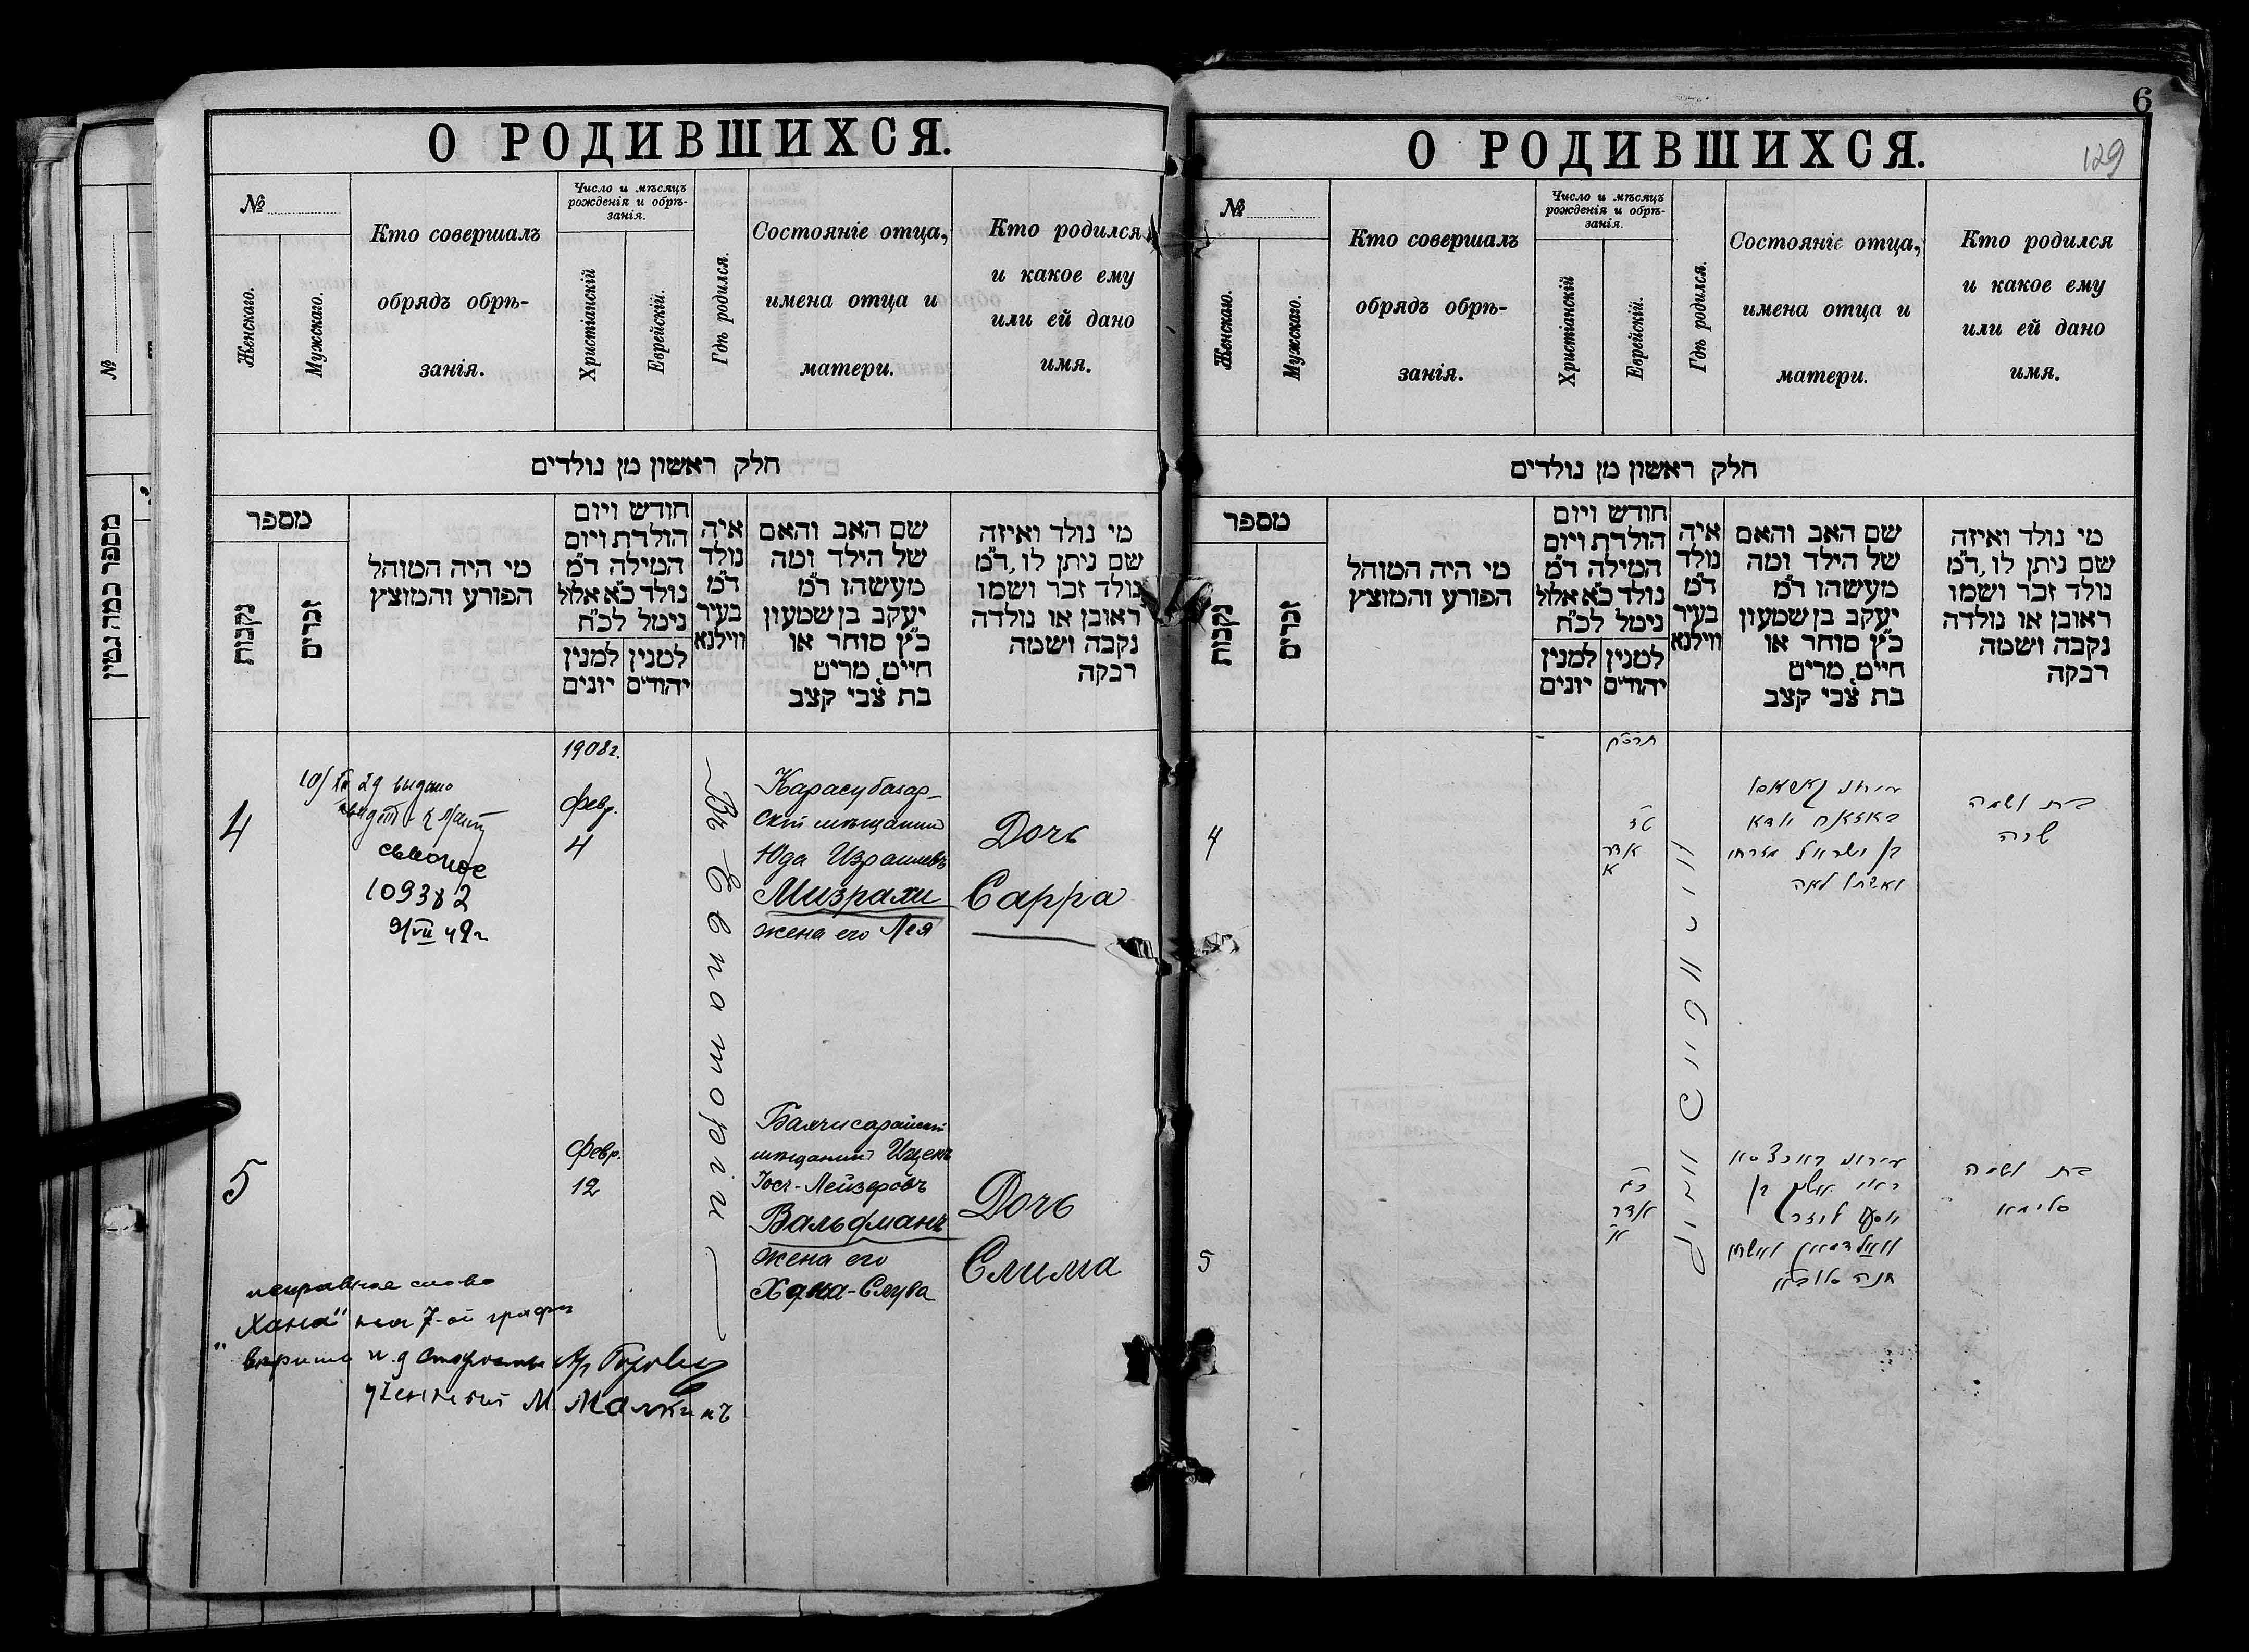 О РОДИВШИХСЯ.
№
Женскаго.
Мужскаго.
Кто совершалъ
обрядъ обрѣ-
занія.
Число и мѣсяцъ
рожденія и обрѣ-
занія.
Христіанскій
Еврейскій.
Гдѣ родился.
Состояніе отца,
имена отца и
матери.
Кто родился
и какое ему
или ей дано
имя.
חלק ראשון מן נולדים
מספר
נקבות
זכרים
מי היה המוהל
הפורע והמוצץ
חודש ויום
הולדת ויום
המילה ד״מ
נולד כ״א אלול
נימל לכ״ח
למנין
יונים
למנין
יהודים
איה
נולד
ד״מ
בעיר
ווילנא
שם האב והאם
של הילד ומה
מעשהו ד״מ
יעקב בן שמעון
כ״ץ סוחר או
חייט, מרים
בת צבי קצב
מי נולד ואיזה
שם ניתן לו, ד״מ
נולד זכר ושמו
ראובן או נולדה
נקבה ושמה
רבקה
4
выдано
109382
9/VII 49г
1908г.
Февр.
4
Въ Евпаторіи
Карасубазар-
скій мѣщанинъ
Юда Израилевъ
Мизрахи
жена его Лея
Дочь
Сарра
5
Февр.
12
Бахчисарайскій
мѣщанинъ Ицекъ
Іось-Лейзеровъ
Вальдманъ
жена его
Хана-Слува
Дочь
Слима
исправленное слово
"Хана" на 7-ой графѣ
вѣрно и.д Старосты
М. Малкинъ
6
129
О РОДИВШИХСЯ.
№
Женскаго.
Мужскаго.
Кто совершалъ
обрядъ обрѣ-
занія.
Число и мѣсяцъ
рожденія и обрѣ-
занія.
Христіанскій
Еврейскій.
Гдѣ родился.
Состояніе отца,
имена отца и
матери.
Кто родился
и какое ему
или ей дано
имя.
חלק ראשון מן נולדים
מספר
נקבות
זכרים
מי היה המוהל
הפורע והמוצץ
חודש ויום
הולדת ויום
המילה ד״מ
נולד כ״א אלול
נימל לכ״ח
למנין
יונים
למנין
יהודים
איה
נולד
ד״מ
בעיר
ווילנא
שם האב והאם
של הילד ומה
מעשהו ד״מ
יעקב בן שמעון
כ״ץ סוחר או
חייט, מרים
בת צבי קצב
מי נולד ואיזה
שם ניתן לו, ד״מ
נולד זכר ושמו
ראובן או נולדה
נקבה ושמה
רבקה
4
תרס״ח
אדר
א
בן ישראל מזרחי
ואשתו לאה
בת ושמה
שרה
5
כג
אדר
א'
בן
יוסף ליזר
וואלדמאן ואשתו
חנה
בת ושמה
סלימא
№
מספר כמה גטין